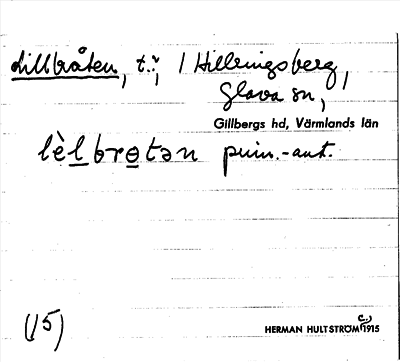 Lillbråten, t.:, 1 Hillringsberg,
Glava sn,
Gillbergs hd, Värmlands län
lèlbrotən prim.-ant.
(15)
HERMAN HULTSTRÖM c.1915